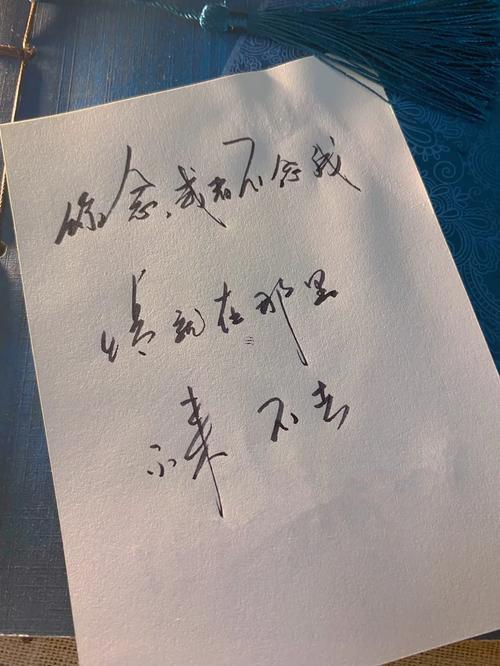 你念，或者不念我
情就在那里
不来 不去